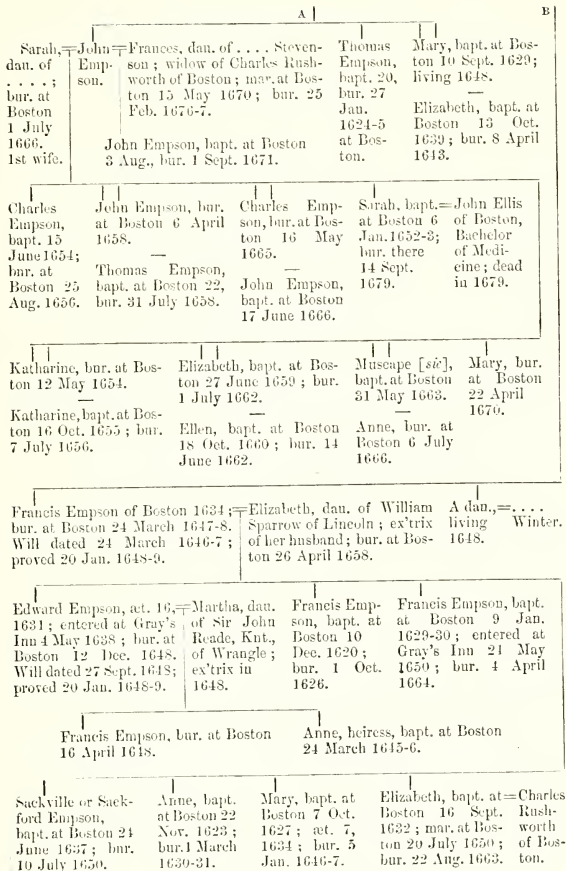 A
B
Sarah,
dau. of
. . . . ;
bur. at
Boston
1 July
1666.
1st wife.
John
Emp-
son.
Frances, dau. of . . . . Steven-
son ; widow of Charles Rush-
worth of Boston ; mar. at Bos-
ton 15 May 1670 ; bur. 25
Feb. 1676-7.
John Empson, bapt. at Boston
3 Aug., bur. 1 Sept. 1671.
Thomas
Empson,
bapt. 20,
bur. 27
Jan.
1624-5
at Bos-
ton.
Mary, bapt. at Bos-
ton 10 Sept. 1629;
living 1648.
—
Elizabeth, bapt. at
Boston 13 Oct.
1639 ; bur. 8 April
1643.
Charles
Empson,
bapt. 15
June 1654;
bur. at
Boston 25
Aug. 1656.
John Empson, bur.
at Boston 6 April
1658.
—
Thomas Empson,
bapt. at Boston 22,
bur. 31 July 1658.
Charles Emp-
son, bur. at Bos-
ton 16 May
1665.
—
John Empson,
bapt. at Boston
17 June 1666.
Sarah, bapt.
at Boston 6
Jan. 1652-3;
bur. there
14 Sept.
1679.
= John Ellis
of Boston,
Bachelor
of Medi-
cine ; dead
in 1679.
Katharine, bur. at Bos-
ton 12 May 1654.
—
Katharine, bapt. at Bos-
ton 16 Oct. 1655 ; bur.
7 July 1656.
Elizabeth, bapt. at Bos-
ton 27 June 1659 ; bur.
1 July 1662.
—
Ellen, bapt. at Boston
18 Oct. 1660 ; bur. 14
June 1662.
Muscape [sic],
bapt. at Boston
31 May 1663.
—
Anne, bur. at
Boston 6 July
1666.
Mary, bur.
at Boston
22 April
1670.
Francis Empson of Boston 1634 ;
bur. at Boston 24 March 1647-8.
Will dated 24 March 1646-7 ;
proved 20 Jan. 1648-9.
Elizabeth, dau. of William
Sparrow of Lincoln ; ex'trix
of her husband ; bur. at Bos-
ton 26 April 1658.
A dau., = . . . .
living Winter.
1648.
Edward Empson, æt. 16,
1631 ; entered at Gray's
Inn 4 May 1638 ; bur. at
Boston 12 Dec. 1648.
Will dated 27 Sept. 1648;
proved 20 Jan. 1648-9.
Martha, dau.
of Sir John
Reade, Knt.,
of Wrangle ;
ex'trix in
1648.
Francis Emp-
son, bapt. at
Boston 10
Dec. 1620 ;
bur. 1 Oct.
1626.
Francis Empson, bapt.
at Boston 9 Jan.
1629-30 ; entered at
Gray's Inn 21 May
1650 ; bur. 4 April
1664.
Francis Empson, bur. at Boston
16 April 1648.
Anne, heiress, bapt. at Boston
24 March 1645-6.
Sackville or Sack-
ford Empson,
bapt. at Boston 24
June 1637 ; bur.
10 July 1650.
Anne, bapt.
at Boston 22
Nov. 1623 ;
bur. 1 March
1630-31.
Mary, bapt. at
Boston 7 Oct.
1627 ; æt. 7,
1634 ; bur. 5
Jan. 1646-7.
Elizabeth, bapt. at
Boston 16 Sept.
1632 ; mar. at Bos-
ton 20 July 1650 ;
bur. 22 Aug. 1663.
= Charles
Rush-
worth
of Bos-
ton.